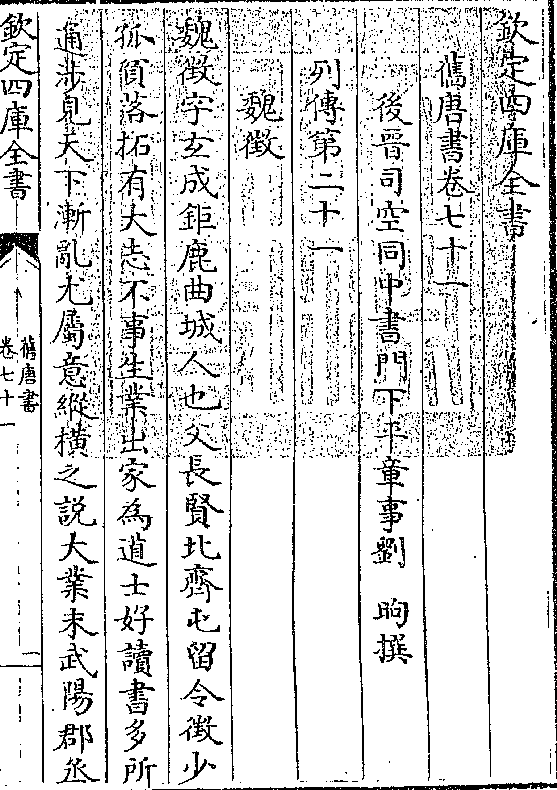 欽定四庫全書
舊唐書卷七十一
後晉司空同中書門下平章事劉 昫撰
列傳第二十一
魏徵
魏徵字玄成鉅鹿曲城人也父長賢北齊屯留令徵少
孤貧落拓有大志不事生業出家為道士好讀書多所
通涉見天下漸亂尤屬意縱橫之説大業末武陽郡丞
欽定四庫全書
舊唐書
卷七十一
一